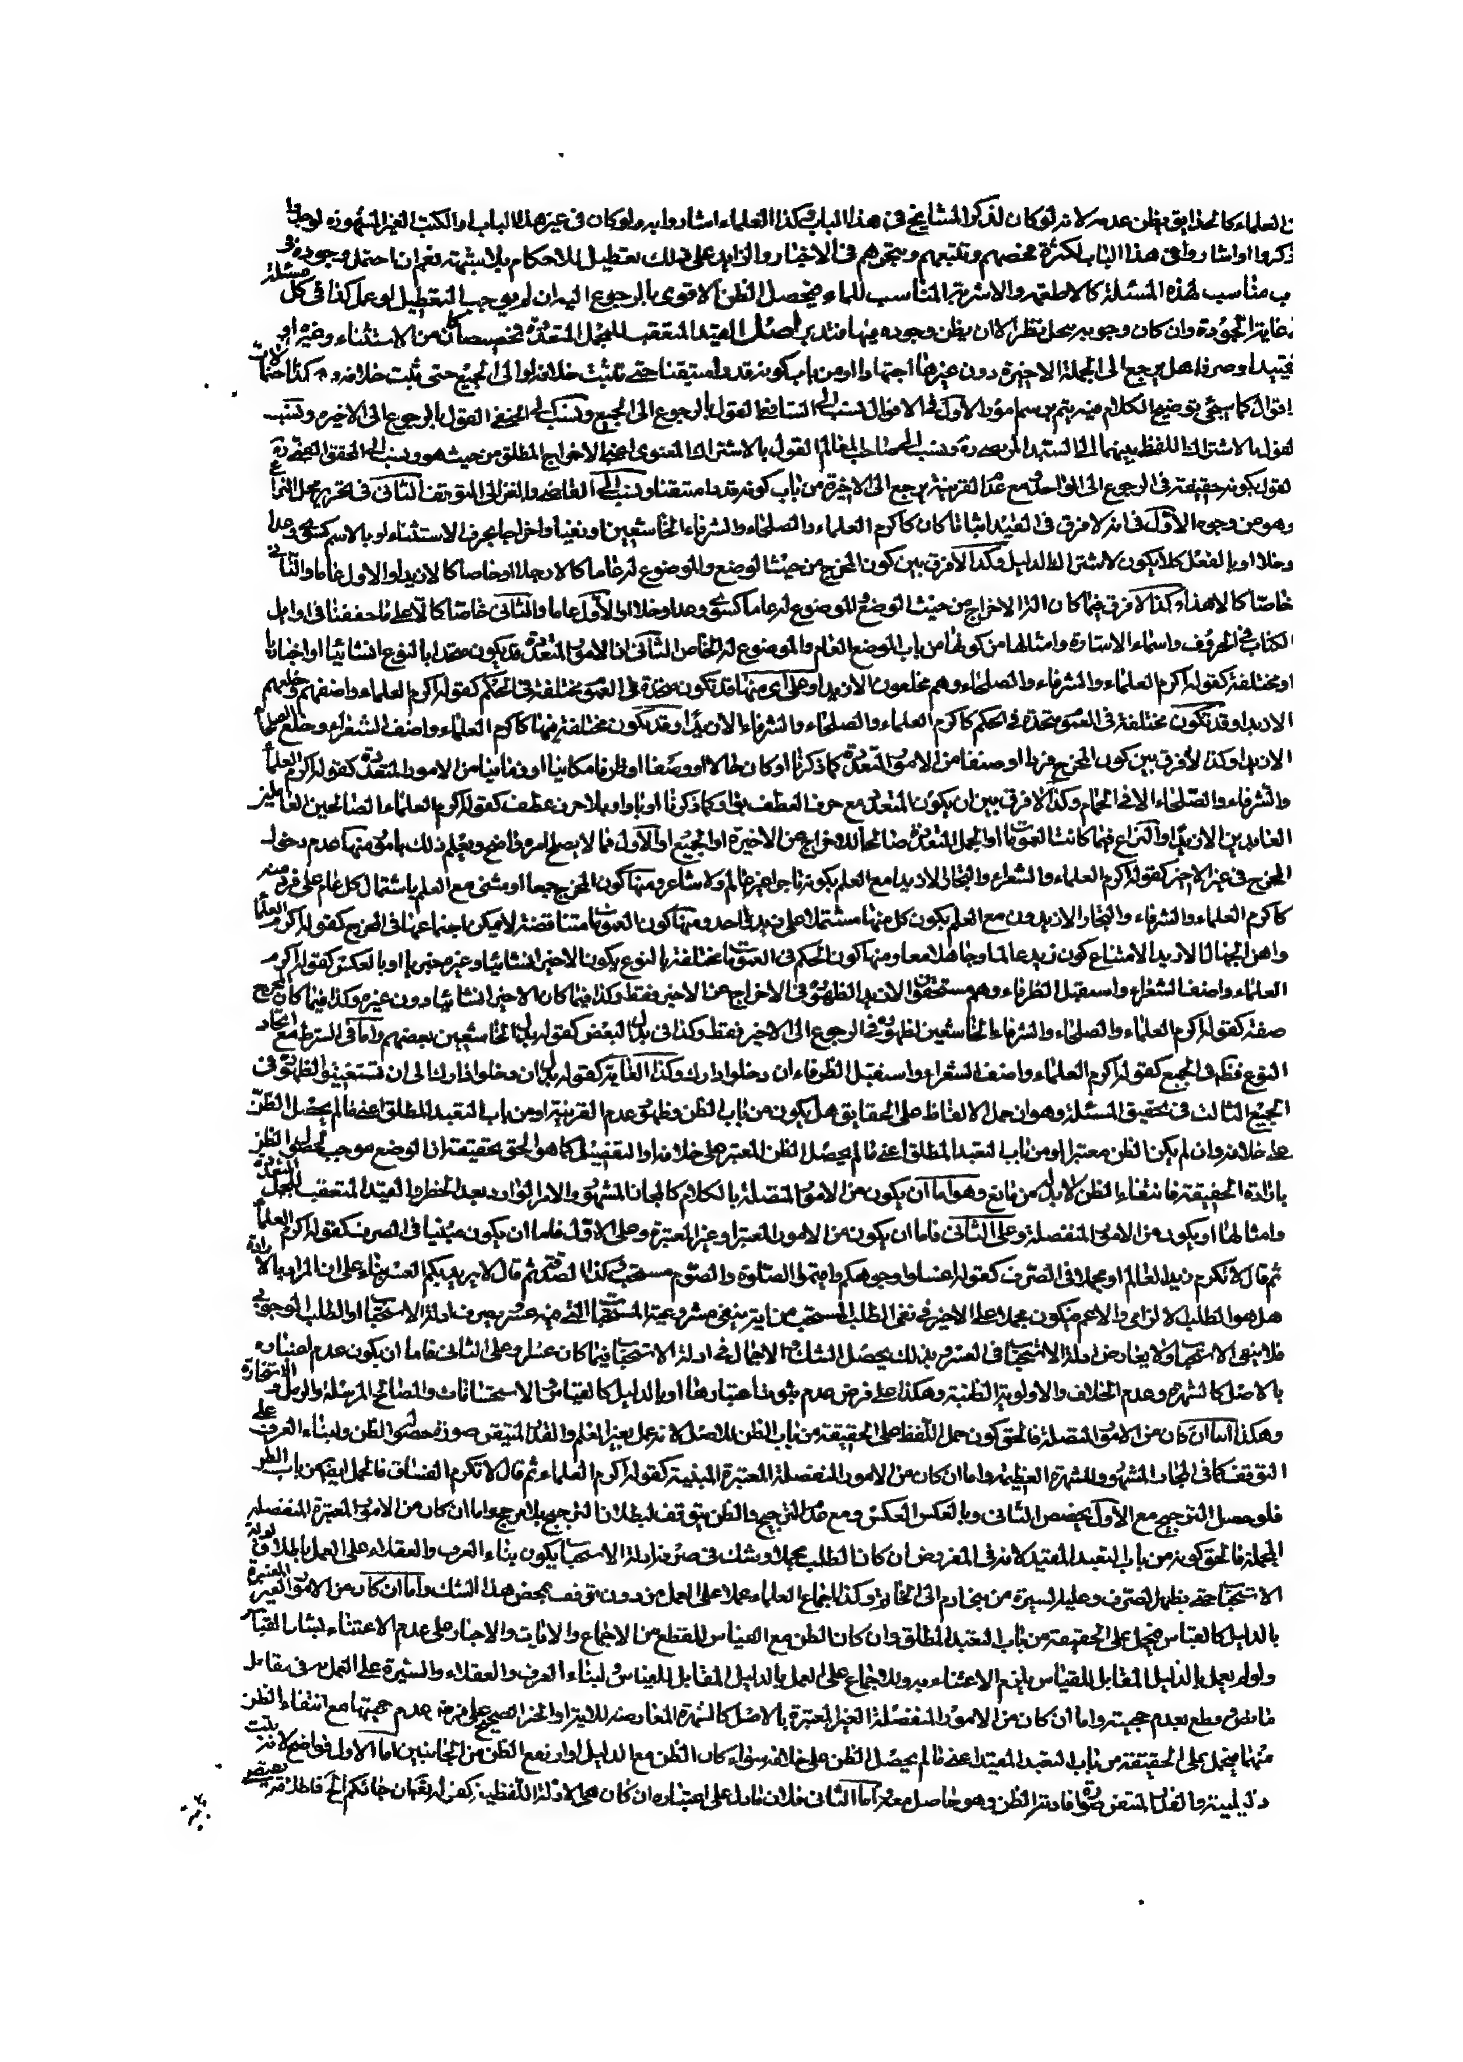 العلماء كالحذايق يظن عدمه لانه لو كان لذكر المشايخ في هذا الباب وكذا العلماء اشاروا به ولو كان في غير هذا الباب او الكتب الغير المشهورة لوجدوا
ذكروا او اشاروا في هذا الباب لكثرة فحصهم وتتبعهم وتبحرهم في الاخبار والزايد على ذلك تعطيل للاحكام بلا شبهة نعم ان احتمل وجوده في
باب مناسب لهذه المسئلة كالاطعمة والاشربة المناسب للماء فيحصل الظن الاقوى بالرجوع اليه ان لم يوجب التعطيل لو عمل كذا في كل مسئلة
وان كان وجوبه محل نظر الا ان يظن وجوده فيها فتدبر اصل القيد المتعقب للجمل المتعددة مخصصا كان من الاستثناء وغيره او
هل يرجع الى الجملة الاخيرة دون غيرها اجتهادا او من باب كونه قدرا متيقنا حتى يثبت خلافه او الى الجميع حتى يثبت خلافه وهكذا احتمالات
اقوال كما سيجئ توضيح الكلام فيه يتم برسم امور الاول في الاقوال نسب الى الشافعي القول بالرجوع الى الجميع ونسب الى الحنفي القول بالرجوع الى الاخيرة ونسب
القول بالاشتراك اللفظي بينهما الى السيد المرتضى ونسب الى صاحب المعالم القول بالاشتراك المعنوي اعني الاخراج المطلق من حيث هو ونسب الى المحقق
القول بكونه حقيقة في الرجوع الى الواحد ومع عدم القرينة يرجع الى الاخيرة من باب كونه قدرا متيقنا ونسب الى القاضي والغزالي التوقف الثاني في تحرير محل النزاع
وهو من وجوه الاول في انه لا فرق في القيد اثباتا كان كاكرم العلماء والصلحاء والشرفاء الخاشعين او نفيا واخراجا بحرف الاستثناء او بالاسم كسوى وعدا
وخلا او بالفعل كلا يكون لاشتراك الدليل وكذا لا فرق بين كون المخرج من حيث الوضع والموضوع له عاما كالا رجلا او خاصا كالا زيدا او الاول عاما والثاني
خاصا كالا هذا وكذا لا فرق فيما كان الة الاخراج من حيث الوضع والموضوع له عاما كسوى وعدا وخلا او الاول عاما والثاني خاصا كالا على ما حققنا في اوايل
الكتاب في الحروف واسماء الاشارة وامثالها من كونها من باب الوضع العام والموضوع له الخاص الثاني ان الامور المتعددة قد يكون متحدا بالنوع انشائيا او اخباريا
او مختلفة كقوله اكرم العلماء والشرفاء والصلحاء وهم مخلعون الا زيدا وعلى اي منهما قد تكون متحدة في العموم مختلفة في الحكم كقوله اكرم العلماء واضفهم وخلعهم
الا زيدا وقد تكون مختلفة في العموم متحدة في الحكم كاكرم العلماء والصلحاء والشرفاء الا زيدا وقد يكون مختلفة فيهما كاكرم العلماء واضف الشعراء وخلع الصلحاء
الا زيدا وكذا لا فرق بين كون المخرج فردا او صنفا من الامور المتعددة كما ذكرنا او كان حالا او وصفا او ظرفا مكانيا او زمانيا من الامور المتعددة كقوله اكرم العلماء
والشرفاء والصلحاء الا في الحمام وكذا لا فرق بين ان يكون المتعدد مع حرف العطف بواو كما ذكرنا او بفاء او بلا حرف عطف كقوله اكرم العلماء الصالحين العاملين
العابدين الا زيدا والنزاع فيما كانت العمومات او الجمل المتعددة صالحا للاخراج عن الاخيرة او الجميع او الاول فما لا يصلح امره واضح ويعلم ذلك بامور منها عدم دخول
المخرج في غير الاخير كقوله اكرم العلماء والشعراء والتجار الا زيدا مع العلم بكونه تاجرا غير عالم ولا شاعر ومنها كون المخرج جمعا او مثنى مع العلم باشتمال كل عام على فرد منه
كاكرم العلماء والشرفاء والتجار الا زيدون مع العلم بكون كل منها مشتملا على زيد واحد ومنها كون العمومات متناقضة لا يمكن اجتماعهما في المخرج كقوله اكرم العلماء
واهن الجهال الا زيدا لامتناع كون زيد عالما وجاهلا معا ومنها كون الحكم في العمومات مختلفة بالنوع بكون الاخير انشائيا وغيره خبريا او بالعكس كقوله اكرم
العلماء واضف الشعراء واستقبل الظرفاء وهم مستحقون الا زيد الظهور في الاخراج عن الاخير فقط وكذا فيما كان الاخير انشائيا دون غيره وكذا فيما كان المخرج
صفة كقوله اكرم العلماء والصلحاء والشرفاء الخاشعين لظهوره في الرجوع الى الاخير فقط وكذا في بدل البعض كقوله بدل الخاشعين بعضهم واما في الشرط مع اتحاد
النوع فظهر في الجميع كقوله اكرم العلماء واضف الشعراء واستقبل الظرفاء ان دخلوا دارك وكذا الغاية كقوله بدل ان دخلوا دارك الى ان تستغني والظهور في
الجميع الثالث في تحقيق المسئلة وهو ان حمل الالفاظ على الحقايق هل يكون من باب الظن وظهور عدم القرينة او من باب التعبد المطلق اعني ما لم يحصل الظن
على خلافه وان لم يكن الظن معتبرا او من باب التعبد المطلق اعني ما لم يحصل الظن المعتبر على خلافه او التفصيل كما هو الحق تحقيقه ان الوضع موجب لحصول الظن
بارادة الحقيقة فانتفاء الظن لا بد من مانع وهو اما ان يكون من الامور المتصلة بالكلام كالمجاز المشهور والامر الوارد بعد الحظر والقيد المتعقب للجمل المتعددة
وامثالها او يكون من الامور المنفصلة وعلى الثاني فاما ان يكون من الامور المعتبرة او غير المعتبرة وعلى الاول فاما ان يكون مبينا في الصرف كقوله اكرم العلماء
ثم قال لا تكرم زيدا العالم او مجملا في الصرف كقوله اغسلوا وجوهكم واقيموا الصلوة والصوم مستحب وكذا الصدقة ثم قال لا يريد بكم العسر بناء على ان المراد بالارادة
هل هو الطلب الالزامي والاعم فيكون مجملا على الاخير في نفي الطلب المستحب من انه ينفي مشروعية المستحبات التي فيه عسر يصرف ادلة الاستحباب او الطلب الوجوبي
فلا ينفي الاستحباب ولا يعارض ادلة الاستحباب في العسر وبذلك يحصل الشك والاجمال في ادلة الاستحباب فيما كان عسرا وعلى الثاني فاما ان يكون عدم اعتباره
بالاصل كالشهرة وعدم الخلاف والاولوية الظنية وهكذا على فرض عدم ثبوت اعتبارها او بالدليل كالقياس والاستحسانات والمصالح المرسلة والرمل والاستخارة
وهكذا اما ان كان من الامور المتصلة فالحق كون حمل اللفظ على الحقيقة من باب الظن للاصل لانه عمل بغير العلم والقدر المتيقن صورة حصول الظن ولبناء العرف على
التوقف كما في المجاز المشهور والشهرة العظيمة واما ان كان من الامور المنفصلة المعتبرة المبنية كقوله اكرم العلماء ثم قال لا تكرم الفساق فالحمل ايضا من باب الظن
فلو حصل الترجيح مع الاول يخصص الثاني وبالعكس العكس ومع عدم الترجيح والظن يتوقف لبطلان الترجيح بلا مرجح واما ان كان من الامور المعتبرة المنفصلة
المجملة فالحق كونه من باب التعبد المقيد لانه في المفروض ان كان الطلب مجملا وشك في صرفه ادلة الاستحباب يكون بناء العرف والعقلاء على العمل باطلاق ادلة
الاستحباب حتى يظهر الصرف وعليه السيرة من بني آدم الى الخاتم وكذا اجماع العلماء عملا على العمل من دون توقف بمحض هذا الشك واما ان كان من الامور الغير المعتبرة
بالدليل كالقياس فيحمل على الحقيقة من باب التعبد المطلق وان كان الظن مع القياس للقطع من الاجماع والايات والاخبار على عدم الاعتناء بشان القياس
ولو لم يعمل بالدليل المقابل للقياس يلزم الاعتناء به وللاجماع على العمل بالدليل المقابل للقياس ولبناء العرف والعقلاء والسيرة على العمل في مقابل
ما نص وقطع بعدم حجيته واما ان كان من الامور المنفصلة الغير المعتبرة بالاصل كالشهرة المعارضة للاية او الخبر الصحيح على فرض عدم حجيتها مع انتفاء الظن
منهما فيحمل على الحقيقة من باب التعبد المقيد اعني ما لم يحصل الظن على خلافه سواء كان الظن مع الدليل او ارتفع الظن من الجانبين اما الاول فواضح لانه
والقدر المتيقن صورة افادته الظن وهو حاصل معه واما الثاني فلان ما دل على اعتباره ان كان هي الادلة اللفظية كقوله تعالى ان جائكم الخ فاطلاقه